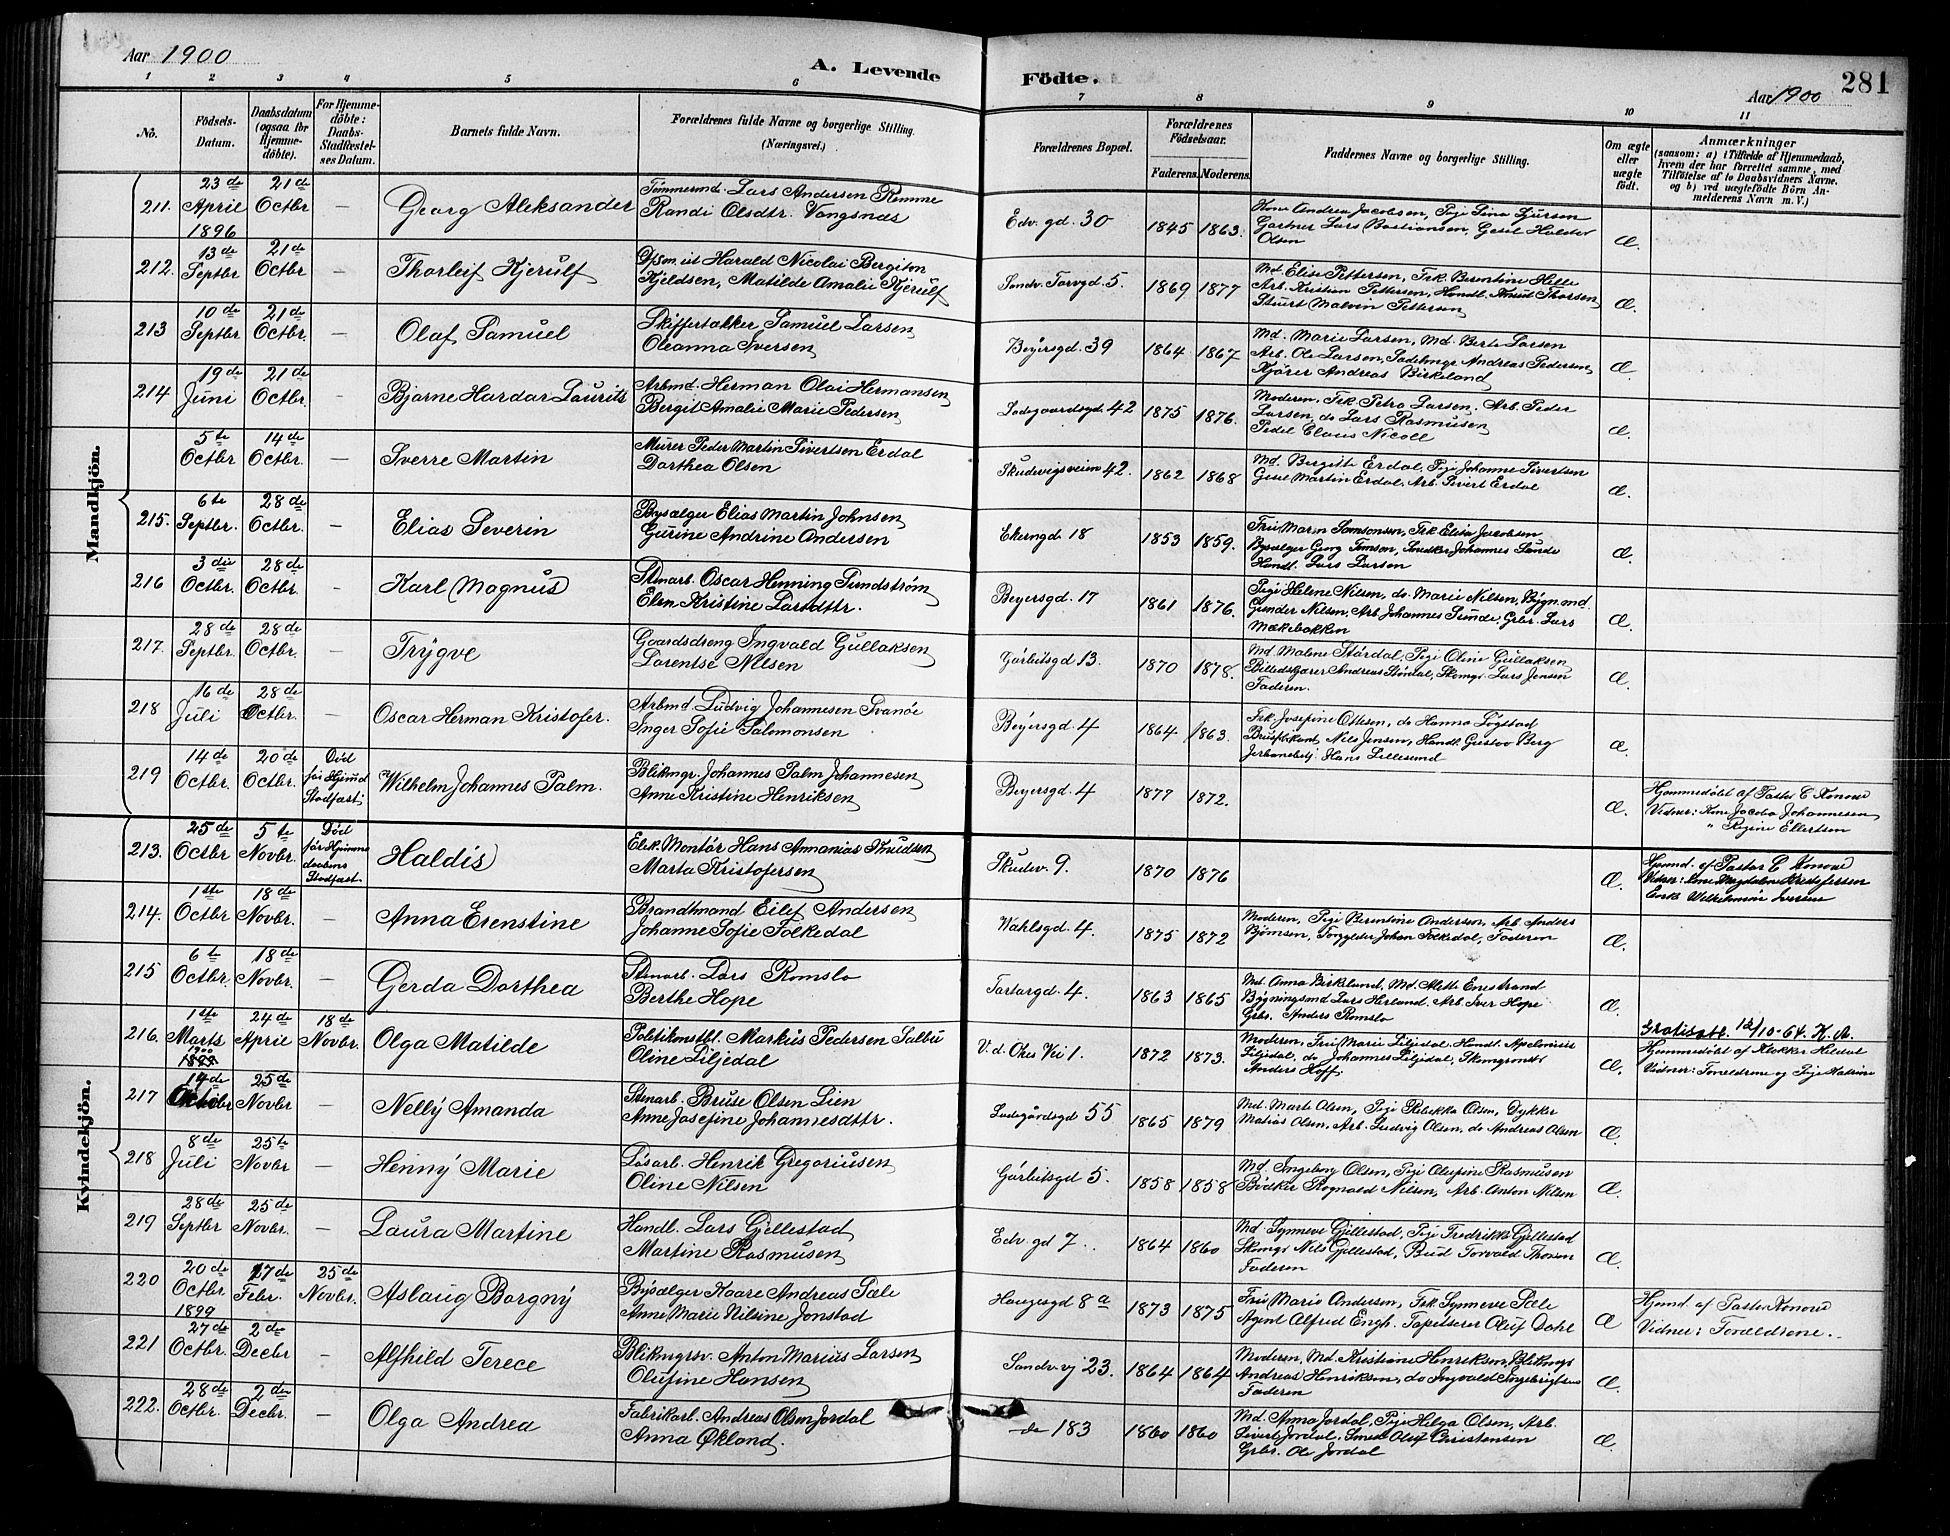 Aar 1900
A. Levende
Födte.
281
Aar 1900
1 2 3 4 5 6 7 8 9 10 11
No.
Födsels-Datum.
Daabsdatum (ogsaa for Hjemmedöbte).
For Hjemmedöbte: Daabs-Stadfæstelses Datum.
Barnets fulde Navn.
Forældrenes fulde Navne og borgerlige Stilling.
(Næringsvei.)
Forældrenes Bopæl.
Forældrenes Födselsaar.
Faderens. Moderens.
Faddernes Navne og borgerlige Stilling.
Om ægte eller uægte födt.
Anmærkninger
(saasom: a) i Tilfælde af Hjemmedaab, hvem der har forrettet samme, med Tilföielse af to Daabsvidners Navne. og b) ved uægtefödte Börn Anmelderens Navn m. V.)
Mandkjön.
211. 23de April 1896 21de Octbr — Georg Aleksander
Tømmermd. Lars Andersen Remme
Randi Olsdtr. Vangsnæs
Edv. gd. 30 1845 1863.
Kone Andrea Jacobsen, Pige Sina Sjursen
Gartner Lars Bastiansen, Gesel Haldor
Olsen
Æ.
212. 13de Septbr 21de Octbr — Thorleif Kjerulf
Harald Nicolai Bergiton
Kjeldsen, Matilde Amalie Kjerulf
Sandv. Torvgd. 5. 1869 1877
Md. Elise Pettersen, Frk. Berentine Hille
Arb. Kristian Pettersen, Handl. Knud Thorsen
Stuert Malvin Pettersen
Æ.
213 10de Septbr 21de Octbr. — Olaf Samuel
Skiffertækker Samuel Larsen
Oleanna Iversen
Beyersgd. 39 1864 1867.
Md. Marie Larsen, Md. Berte Larsen
Arb. Ole Larsen, Sadelmgr Andreas Pedersen
Kjører Andreas Birkeland
Æ.
214 19de Juni 21de Octbr. — Bjarne Hardar Laurits
Arbmd. Herman Olai Hermansen
Bergit Amalie Marie Pedersen
Ladegaardsgd. 42 1875 1876.
Moderen, Frk Petra Larsen, Arb. Peder
Larsen, do Lars Rasmusen
Pedel Claus Nicoll
Æ.
5te Octbr 14de Octbr. — Sverre Martin
Murer Peder Martin Sivertsen Erdal
Dorthea Olsen
Skudevigsveien 42. 1862 1868
Md. Bergitte Erdal, Pige Johanne Sivertsen
Gesel Martin Erdal, Arb. Sivert Erdal
Æ.
215. 6te Septbr. 28de Octbr. — Elias Severin
Bysælger Elias Martin Johnsen
Gurine Andrine Andersen
Ekerngd. 18 1853 1859.
Fru Maren Samsonsen, Frk Elisa Jacobsen
Bysælger Georg Tomson, Snedker Johannes Sunde
Handl. Lars Larsen
Æ.
216 3die Octbr. 28de Octbr. — Karl Magnus
Stenarb. Oscar Henning Sundstrøm
Elen Kristine Larsdttr.
Beyersgd. 17 1861 1876.
Pige Helene Nilsen, do. Marie Nilsen, Bygn.md.
Gunder Nilsen, Arb Johannes Sunde, Grbr. Lars
Mækebakken
Æ.
217. 28de Septbr. 28de Octbr. — Trygve
Gaardsdreng Ingvald Gullaksen
Lorentse Nilsen
Garbitsgd 13. 1870 1878.
Md. Malene Størdal, Pige Oline Gullaksen
Andreas Størdal, Skomgr. Lars Jensen
Faderen.
Æ.
218 16de Juli 28de Octbr. — Oscar Herman Kristofer.
Arbmd. Ludvig Johannesen Svanøe
Inger Sofie Salomonsen
Beyersgd. 4 1864 1863.
Frk. Josefine Ottesen, do Hanna Løgstad
Nils Jensen, Handl. Gustav Berg
Hans Lillesund
Æ.
219 14de Octbr. 20de Octbr.
Død før Hjemd Stadfæst.
Wilhelm Johannes Palm.
Blikmgr. Johannes Palm Johannesen
Anne Kristine Henriksen
Beyersgd. 4 1877 1872.
Æ.
Hjemmedøbt af Pastor C Konow
Vidner: Kone Jacoba Johannesen
" Regine Ellertsen
Kvindekjön.
213. 25de Octbr 5te Novbr.
Død før Hjemmedaabens Stadfæst.
Haldis
Elek. Montør Hans Annanias Knudsen
Marta Kristofersen
Skudev. 9. 1870 1876
Æ.
Hjemd. af Pastor C Konow
Vidner: Kone Magdalene Kristofersen
Enke Wilhelmine Iversen
214. 1ste Octbr 18de Novbr. — Anna Erenstine
Brandmand Eilef Andersen
Johanne Sofie Folkedal
Wahlsgd. 4. 1875 1872
Moderen, Pige Berentine Andersen, Arb Anders
Bjørnsen, Johan Folkedal, Faderen
Æ.
215 6te Octbr. 18de Novbr. — Gerda Dorthea
Stenarb. Lars Romslo
Berthe Hope
Tartargd. 4. 1863 1865
Md. Anna Birkeland, Md. Mette Enestrand
Bygningsmd Lars Herland. Arb Iver Hope
Grbr. Anders Romslo
Æ.
216. 1ste Marts 1900 24de April 18de Novbr. Olga Matilde
Politikonstbl. Markus Pedersen Salbu
Oline Liljedal
V. d. Økes Vei 1. 1872 1873.
Moderen, Fru Marie Liljedal, Handl.
Liljedal, do Johannes Liljedal,
Anders Hoff
Æ.
Gratisatt. 12/10-64. K. A.
Hjemmedøbt af Klokker
Vidner: Forældrene og Pige Katrine
217 14de Octbr 25de Novbr — Nelly Amanda
Stenarb. Bruse Olsen Lien
Anne Josefine Johannesdttr.
Ladegårdsgd 55 1865 1879
Md. Marte Olsen, Pige Rebekka Olsen, Dykker
Matias Olsen, Arb. Ludvig Olsen, do Andreas Olsen
Æ.
218 8de Juli 25te Novbr — Henny Marie
Løsarb. Henrik Gregoriusen
Oline Nilsen
Garbitsgd 5. 1858 1858
Md. Ingeborg Olsen, Pige Olufine Rasmusen
Bødker Ragnvald Nilsen, Arb. Anton Nilsen
Æ.
219 28de Septbr 25de Novbr. — Laura Martine
Handl. Lars Gjellestad
Martine Rasmusen
Edv. gd 7. 1864 1860
Md. Synneve Gjellestad, Pige Fredrikke Gjellestad
Skomgr Nils Gjellestad, Bud Torvald Thorsen
Faderen
Æ.
220 20de Octbr. 1899 17de Febr. 25de Novbr. Aslaug Borgny
Bysælger Kaare Andreas Sæle
Anne Marie Nilsine Jonstad
Haugesgd 8 a 1873 1875
Fru Marie Andersen, Frk. Synneve Sæle
Agent Alfred Engh. Tapetserer Oluf Dahl
Æ
Hjemd af Pastor Konow
Vidner: Forældrene.
221 27de Octbr. 2de Decbr — Alfhild Terece
Blikmgrsv. Anton Marius Larsen
Olufine Hansen
Sandv. vj 23. 1864 1864
Moderen, Md. Kristiane Henriksen, Blikmgr
Andreas Henriksen, do Ingvald Ingebrigtsen
Faderen
Æ.
222. 28de Octbr. 2den Decbr. — Olga Andrea
Fabrikarb. Andreas Olsen Jordal
Anna Økland.
do 183 1860 1860
Md. Anna Jordal, Pige Helga Olsen, Arb.
Sivert Jordal, Smed Oluf Christensen
Grbr. Ole Jordal
Æ.